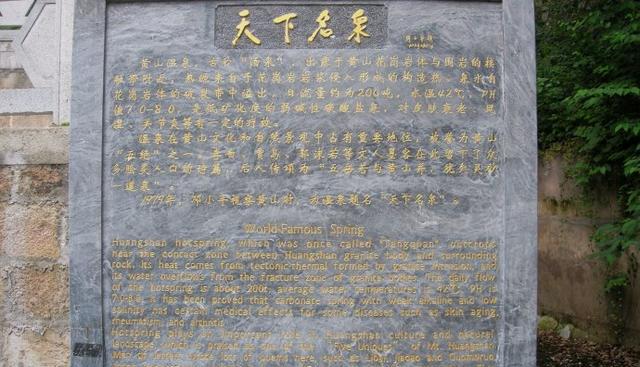 天下名泉
黄山温泉，古称“汤泉”，出露于黄山花岗岩体与围岩的接
触带附近，热源来自于花岗岩岩浆侵入形成的构造热，泉水自
花岗岩体的破裂带中溢出，日流量约为200吨，水温42℃，PH
值7.0-8.0，
温泉在黄山文化和自然景观中占有重要地位，被誉为黄山
“五绝”之一。
一道泉”。
1979年，邓小平视察黄山时，为温泉题名“天下名泉”。
World-Famous Spring
Huangshan hotspring, which was once called "Tangquan", outcrops
near the contact zone between Huangshan granite body and surrounding
rock. Its heat comes from tectonic thermal formed by granite intrusion, and
its water overflows from the fracture zone of granite body. The daily flow
of the hotspring is about 200t, average water temperatures is 42℃, PH is
7.0-8.0. It has been proved that carbonate spring with week alkaline and low
salinity has certain medical effects for some diseases such as skin aging,
rheumatism and arthritis.
Hotspring plays an important role in Huangshan culture and natural
landscape, which is praised as one of the "Five Uniques" of Mt. Huangshan.
Men of letters wrote lots of poems here, such as Libai, Jiadao and Guomoruo,